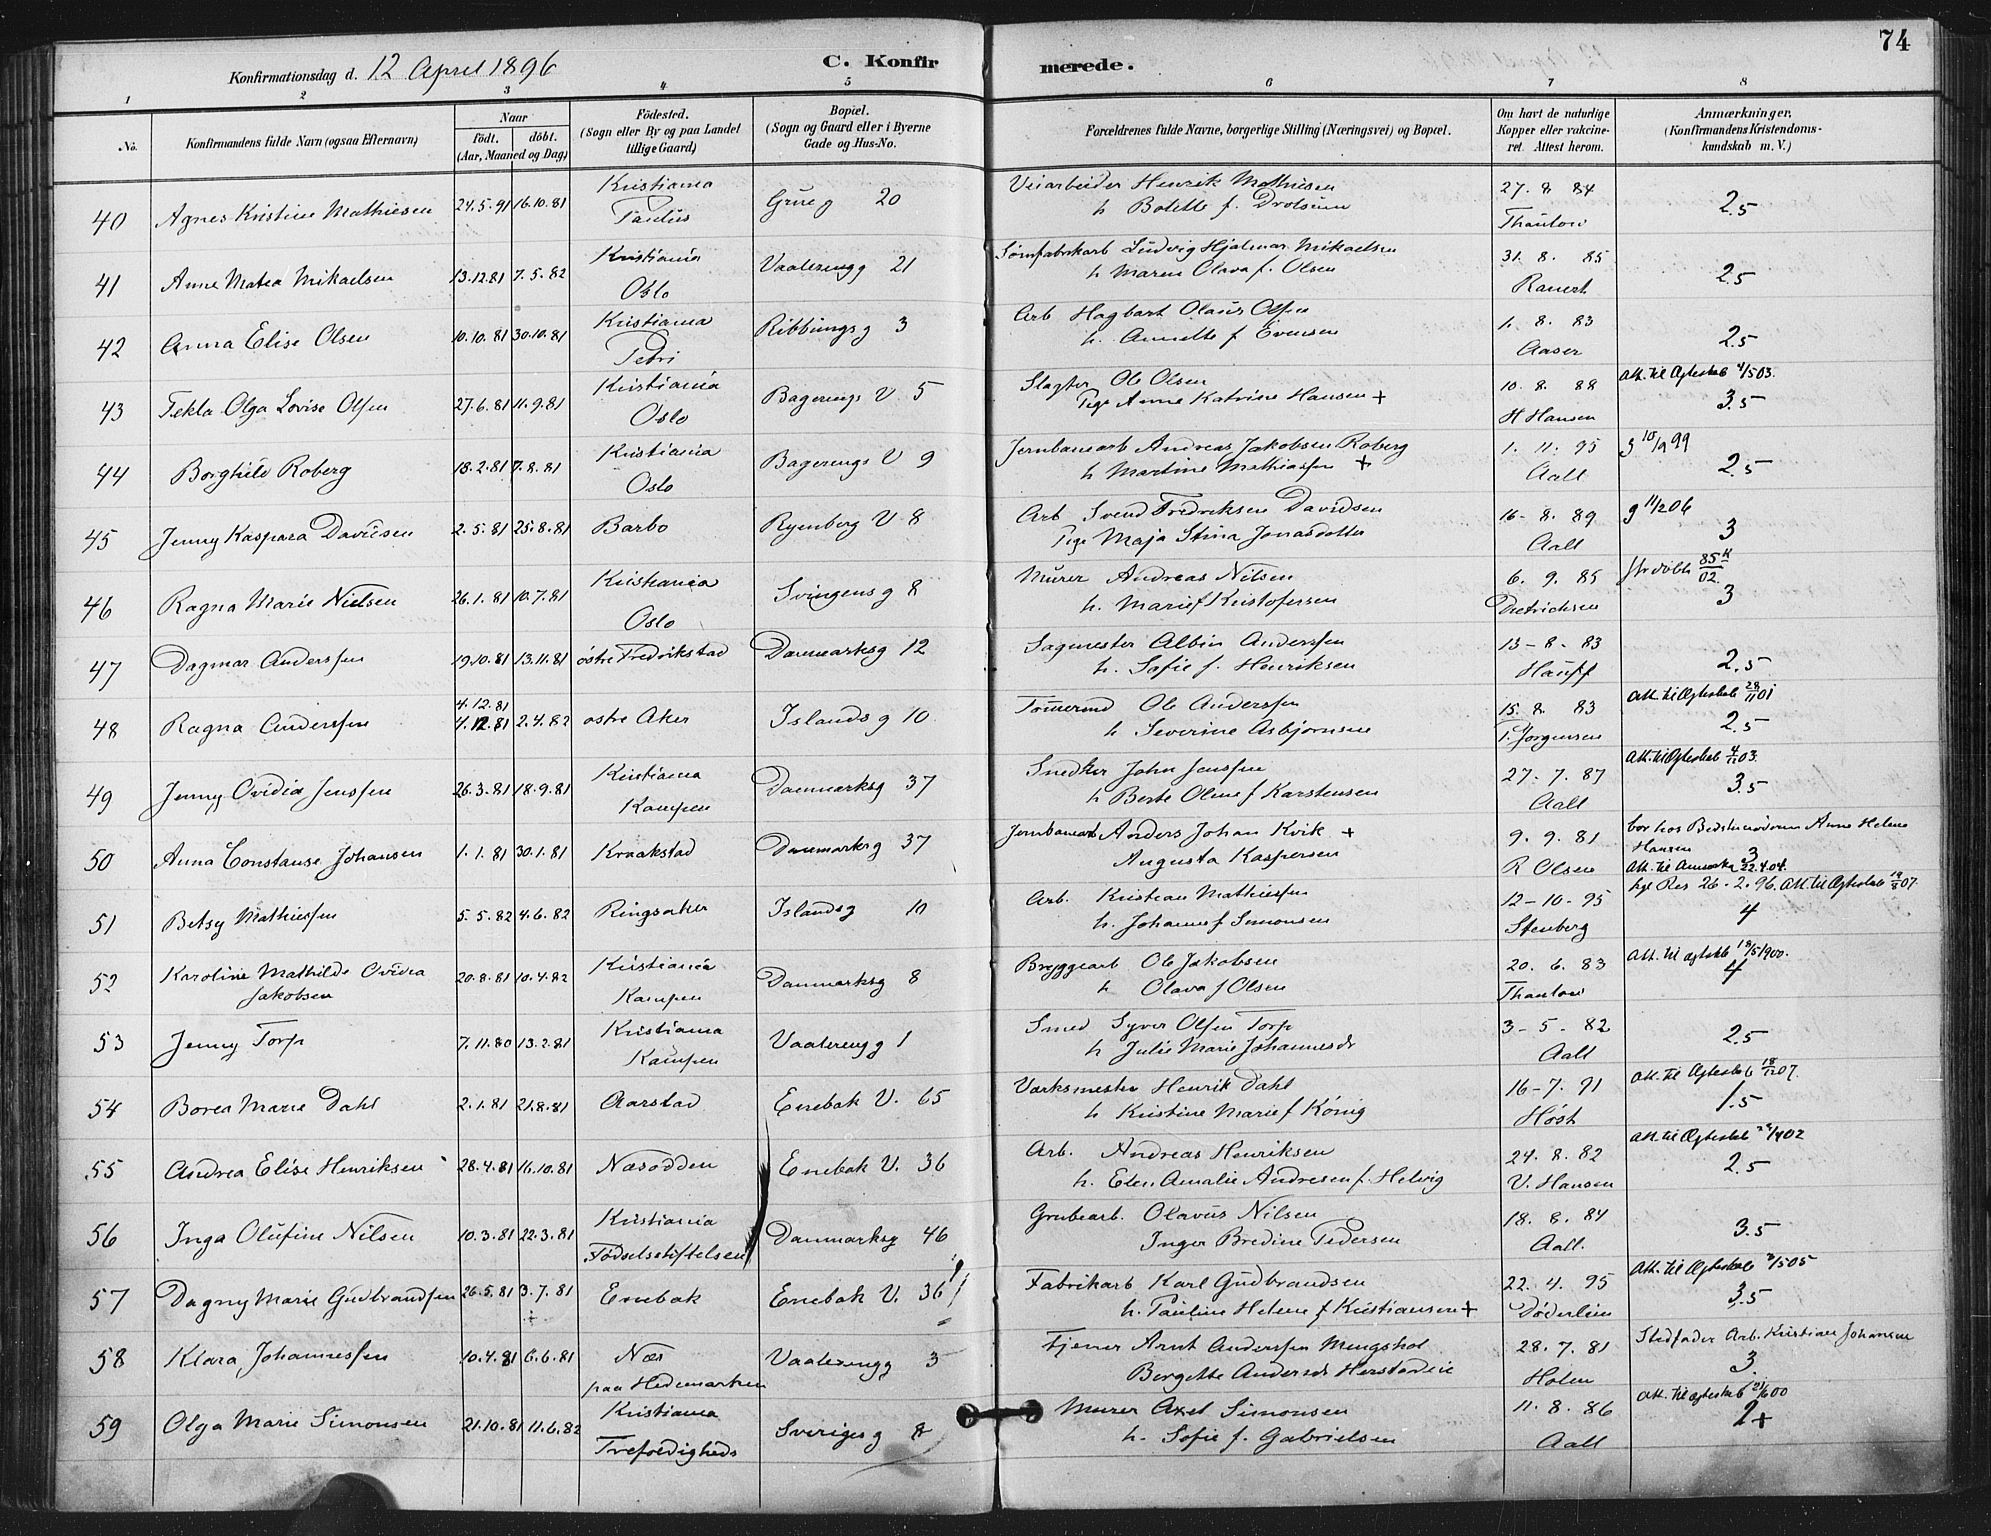 74
Konfirmationsdag d. 12 April 1896
C. Konfirmerede.
1 2 3 4 5 6 7 8
No.
Konfirmandens fulde Navn (ogsaa Efternavn)
Naar
födt. döbt.
(Aar, Maaned og Dag)
Födested.
(Sogn eller By og paa Landet
tillige Gaard)
Bopæl.
(Sogn og Gaard eller i Byerne
Gade og Hus-No.
Forældrenes fulde Navne, borgerlige Stilling (Næringsvei) og Bopæl.
Om havt de naturlige
Kopper eller vakcine-
ret. Attest herom.
Anmærkninger.
(Konfirmandens Kristendoms-
kundskab m. V.)
40 Agnes Kristine Mathiesen 24.5.91 16.10.81 Kristiania Paulus Grüneg 20 Veiarbeider Henrik Mathiesen
h Bolette f. 27. 8 84 Thaulow 2.5
41 Anne Matea Mikaelsen 13.12.81 7.5.82 Kristiania Oslo Vaalerengg 21 Sömfabrikarb Ludvig Hjalmar Mikaelsen
h Maren Olava f. Olsen 31. 8. 85 Ranert 2.5
42 Anna Elise Olsen 10.10.81 30.10.81 Kristiania Petri Ribbungsg 3 Arb Hagbart Olaus Olsen
h. Annette f Evensen 1. 8. 83 Aaser 2.5
43 Tekla Olga Lovise Olsen 27.6.81 11.9.81 Kristiania Oslo Bagerengs V. 5 Slagter Ole Olsen
Pige Anne Katrine Hansen + 10. 8. 88 H Hansen Att. til Ægteskab 4/5 03. 3.5
44 Borghild Roberg 18.2.81 7.8.81 Kristiania Oslo Bagerengs V 9 Jernbanearb Andreas Jakobsen Roberg
h Martine Mathiassen + 1. 11. 95 Aall 2.5
45 Jenny Kaspara Davidsen 2.5.81 25.8.81 Barbo Ryenberg V 8 Arb Svend Fredriksen Davidsen
Pige Maja Stina Jonasdotter 16- 8. 89 Aall g 11/2 06 3
46 Ragna Marie Nielsen 26.1.81 10.7.81 Kristiania Oslo Svingensg 8 Murer Andreas Nilsen
h. Marie f Kristofersen 6. 9. 85 Dietrichsen 3
47 Dagmar Anderssen 19.10.81 13.11.81 östre Fredrikstad Danmarksg 12 Sagmester Albin Anderssen
h. Sofie f. Henriksen 13-8-83 Hauff 2.5
48 Ragna Anderssen 4.12.81
4.12.81 2.4.82 östre Aker Islandsg 10 Tömmermd Ole Anderssen
h Severine Asbjørnsen 15. 8. 83 T. Jørgensen Att. til Ægteskab 28/11 01 2.5
49 Jenny Ovidia Jenssen 26.3.81 18.9.81 Kristiania Kampen Danmarksg 37 Snedker John Jenssen
h Berte Oline f Karstensen 27. 7. 87 Aall Att. til Ægteskab 4/1 03. 3.5
50 Anna Constanse Johansen 1.1.81 30.1.81 Kraakstad Danmarksg 37 Jernbanearb Anders Johan Kvik +
Augusta Kaspersen 9. 9. 81 R Olsen bor hos Bedstemoderen Anne Helene
Hansen 3
51 Betsy Mathiessen 5.5.82 4.6.82 Ringsaker Islandsg 10 Arb. Kristian Mathiessen
h. Johanne f Simonsen 12-10-95 Stenberg kgl Res 26.2.96. Att. til Ægteskab 07. 4
52 Karoline Mathilde Ovidia
Jakobsen 20.8.81 10.4.82 Kristiania Kampen Danmarksg 8 Bryggearb Ole Jakobsen
h Olava f Olsen 20. 6. 83 Thaulow Att. til ægteskb 18/5 1900. 4
53 Jenny Torp 7.11.80 13.2.81 Kristiania Kampen Vaalerengg 1 Smed Syver Olsen Torp
h Julie Marie Johannesdr 3-5-82 Aall 2.5
54 Borea Marie Dahl 2.1.81 21.8.81 Aarstad Enebak V. 65 Værksmester Henrik Dahl
h Kristine Marie f König 16-7. 91 Høst Att. til Ægteskab 18/12 07. 1.5
55 Andrea Elise Henriksen 28.4.81 16.10.81 Næsodden Enebak V. 36 Arb. Andreas Henriksen
h. Elen Amalie Andresen f. Helvig 24. 8. 82 V. Hansen Att. til Ægteskab 02 2.5
56 Inga Olufine Nilsen 10.3.81 22.3.81 Kristiania Födselsstiftelsen Danmarksg 46 Grubearb. Olavus Nilsen
Inger Bredine Pedersen 18. 8. 84 Aall. 3.5
57 Dagny Marie Gudbrandsen 26.5.81 3.7.81 Enebak Enebak V. 36 Fabrikarb Karl Gudbrandsen
h. Pauline Helene f Kristiansen + 22. 4. 95 Döderlein Att. til Ægteskab 05 3.5
58 Klara Johannessen 10.4.81 6.6.81 Næs
paa Hedemarken Vaalerengg 3 Tjener Arnt Anderssen Mengshol
Bergette Andersdr 28. 7. 81 Holen Stedfader Arb. Kristian Johansen
3
59 Olga Marie Simonsen 21.10.81 11.6.82 Kristiania Trefoldigheds Sverigesg 8 Murer Axel Simonsen
h. Sofie f. Gabrielsen 11. 8. 86 Aall Att. til Ægteskab 21/6 00 2+